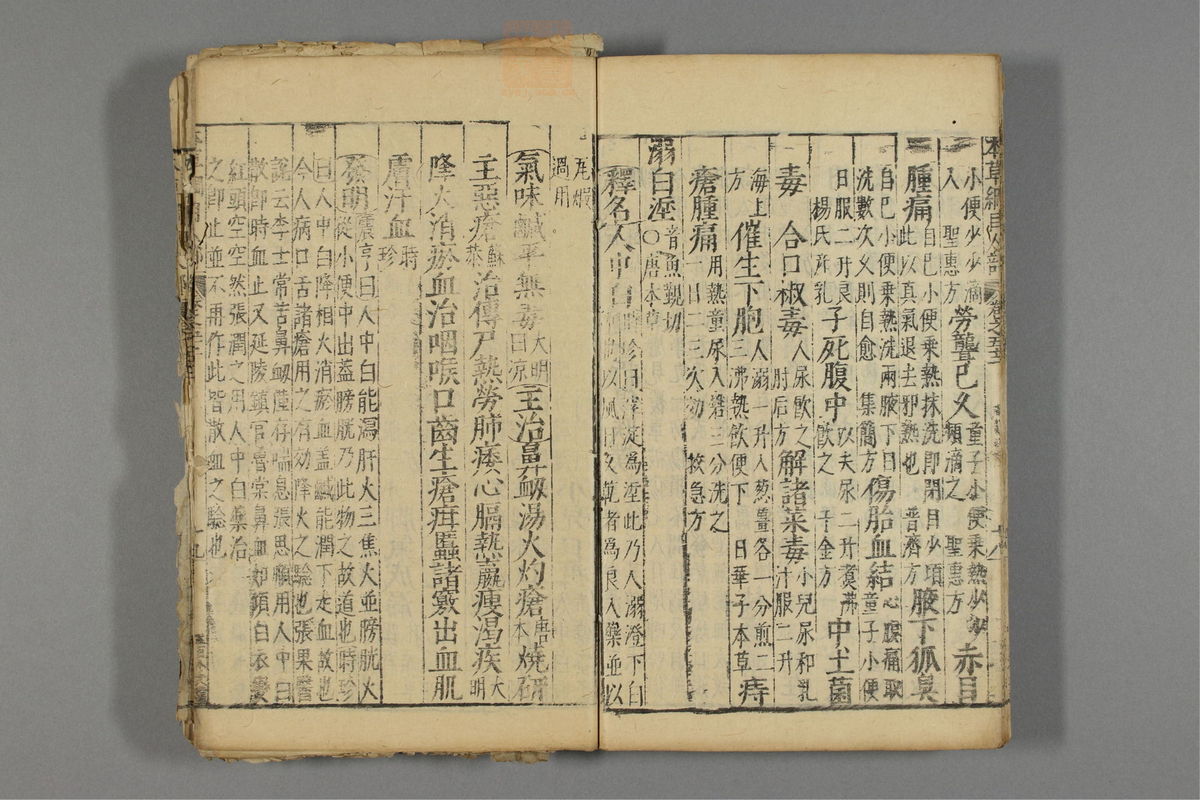 本草綱目人部 卷之五十二
小便少少滴入 聖惠方 勞聾已久 童子小便乘熱少少頻滴之 聖惠方 赤目
腫痛 自己小便乘熱抹洗即閉目少頃此以真氣退去邪熱也 普濟方 腋下狐臭
自己小便乘熱洗兩腋下日洗數次久則自愈 集簡方 傷胎血結 心腹痛取童子小便
日服二升良 楊氏產乳 子死腹中 以夫尿二升煮沸飲之 千金方 中土菌
毒 合口椒毒 人尿飲之 肘后方 解諸菜毒 小兒尿和乳汁服二升
海上方 催生下胞 人溺一升入葱薑各一分煎二三沸熱飲便下 日華子本草 痔
瘡腫痛 用熱童尿入礬三分洗之一日二三次効 救急方
溺白垽 音魚覲切 ○唐本草
釋名 人中白 時珍曰滓淀為垽此乃人溺澄下白 以風日久乾者為良入藥並以
瓦煅過用
氣味 鹹平無毒 大明曰涼 主治 鼻衄湯火灼瘡 唐本 燒研
主惡瘡 蘇恭 治傳尸熱勞肺痿心膈熱羸瘦渴疾 大明
降火消瘀血治咽喉口齒生瘡疳䘌諸竅出血肌
膚汗血 時珍
發明 震亨曰人中白能瀉肝火三焦火並膀胱火
從小便中出蓋膀胱乃此物之故道也時珍
曰人中白降相火消瘀血蓋鹹能潤下走血故也
今人病口舌諸瘡用之有効降火之驗也張杲醫
說云李士常苦鼻衄僅存喘息張思順用人中白
散即時血止又延陵鎮官曾棠鼻血如傾白衣變
紅頭空空然張潤之用人中白藥治
之即止並不再作此皆散血之驗也